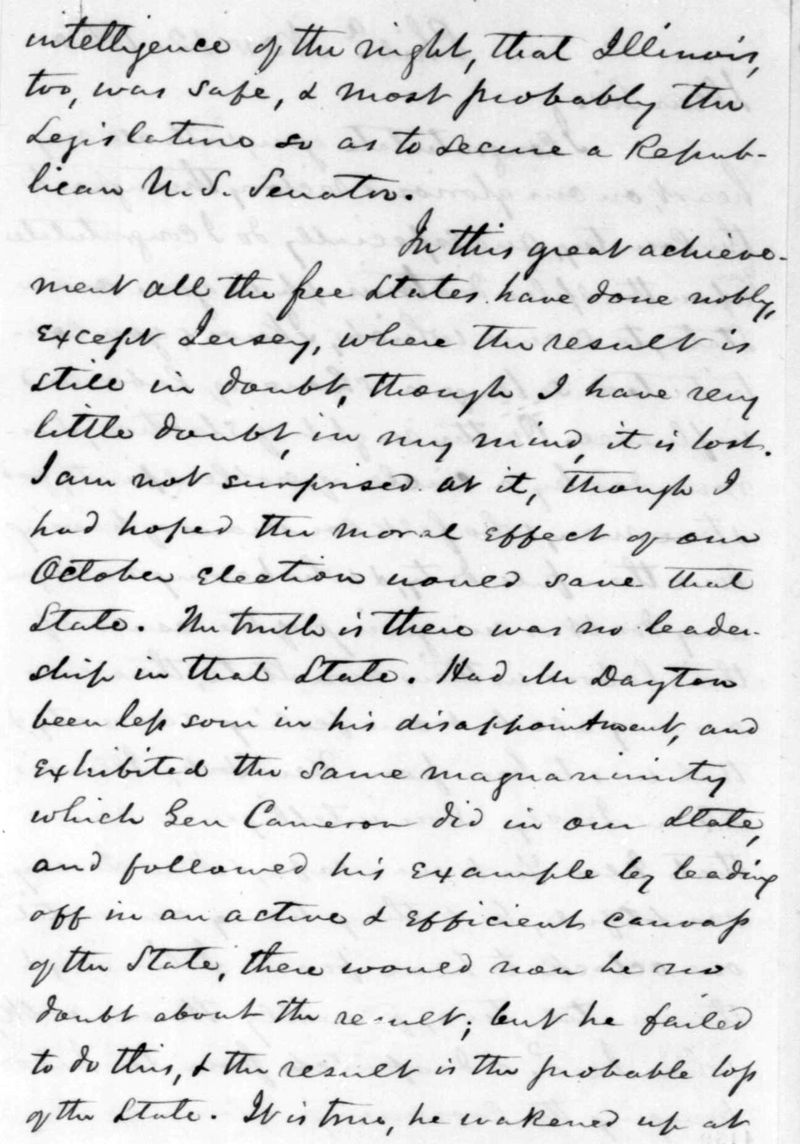 intelligence of the night, that Illinois,
too, was safe, & most probably the
Legislature so as to secure a Repub-
lican U.S. Senator.
In this great achieve-
ment all the free States have done nobly,
except Jersey, where the result is
still in doubt, though I have very
little doubt, in my mind, it is lost.
I am not surprised at it, though I
had hoped the moral effect of our
October election would save that
State. The truth is there was no leader-
ship in that State. Had Mr Dayton
been less sour in his disappointment, and
exhibited the same magnanimity
which Gen Cameron did in our State,
and followed his example by leading
off in an active & efficient canvass
of the State, there would now be no
doubt about the result; but he failed
to do this, & the result is the probable loss
of the State. It is true, he wakened up at